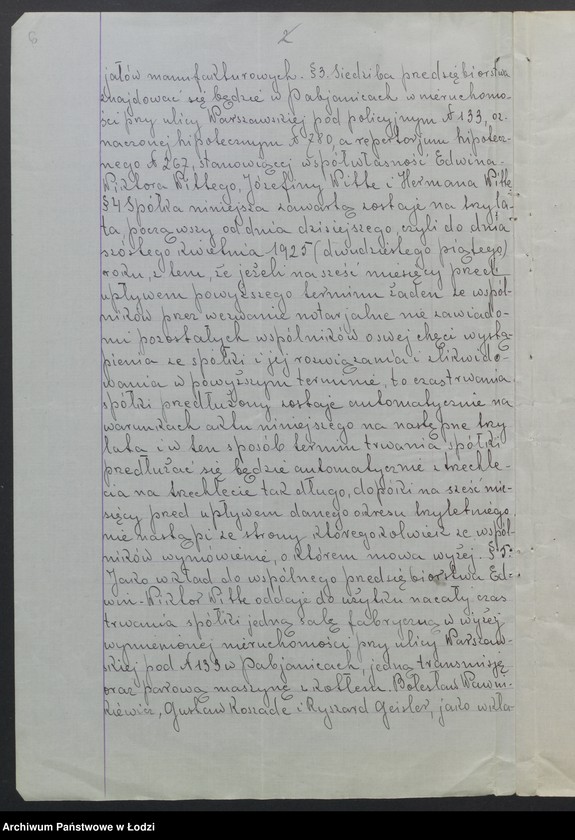 6
2
jałów manufakturowych. §3. Siedziba przedsiębiorstwa
znajdować się będzie w Pabjanicach w nieruchomo-
ści przy ulicy Warszawskiej pod policyjnym № 133, oz-
naczonej hipotecznym № 280, a repertorjum hipotecz-
nego № 267, stanowiącej współwłasność Edwina-
Wiktora Wittego, Józefiny Witte i Hermana Witte
§4 Spółka niniejsza zawartą zostaje na trzy la-
ta począwszy od dnia dzisiejszego, czyli do dnia
szóstego kwietnia 1925 (dwudziestego piątego)
roku, z tem, że jeżeli na sześć miesięcy przed
upływem powyższego terminu żaden ze wspól-
ników przez wezwanie notarjalne nie zawiado-
mi pozostałych wspólników o swej chęci wystą-
pienia ze spółki i jej rozwiązania i zlikwido-
wania w powyższym terminie, to czas trwania
spółki przedłużony zostaje automatycznie na
warunkach aktu niniejszego na następne trzy
lata i w ten sposób termin trwania spółki
przedłużać się będzie automatycznie z trzechle-
cia na trzechlecie tak długo, dopóki na sześć mie-
sięcy przed upływem danego okresu trzyletniego
nie nastąpi ze strony któregokolwiek ze wspól-
ników wymówienie, o którem mowa wyżej. §5.
Jako wkład do wspólnego przedsiębiorstwa Ed-
win-Wiktor Witte oddaje do użytku na cały czas
trwania spółki jedną salę fabryczną w wyżej
wymienionej nieruchomości przy ulicy Warszaw-
skiej pod № 133 w Pabjanicach, jedną transmisję
oraz parową maszynę z kotłem. Bolesław Wawrz-
kiewicz, Gustaw Kossade i Ryszard Geisler, jako wkła-
Archiwum Państwowe w Łodzi